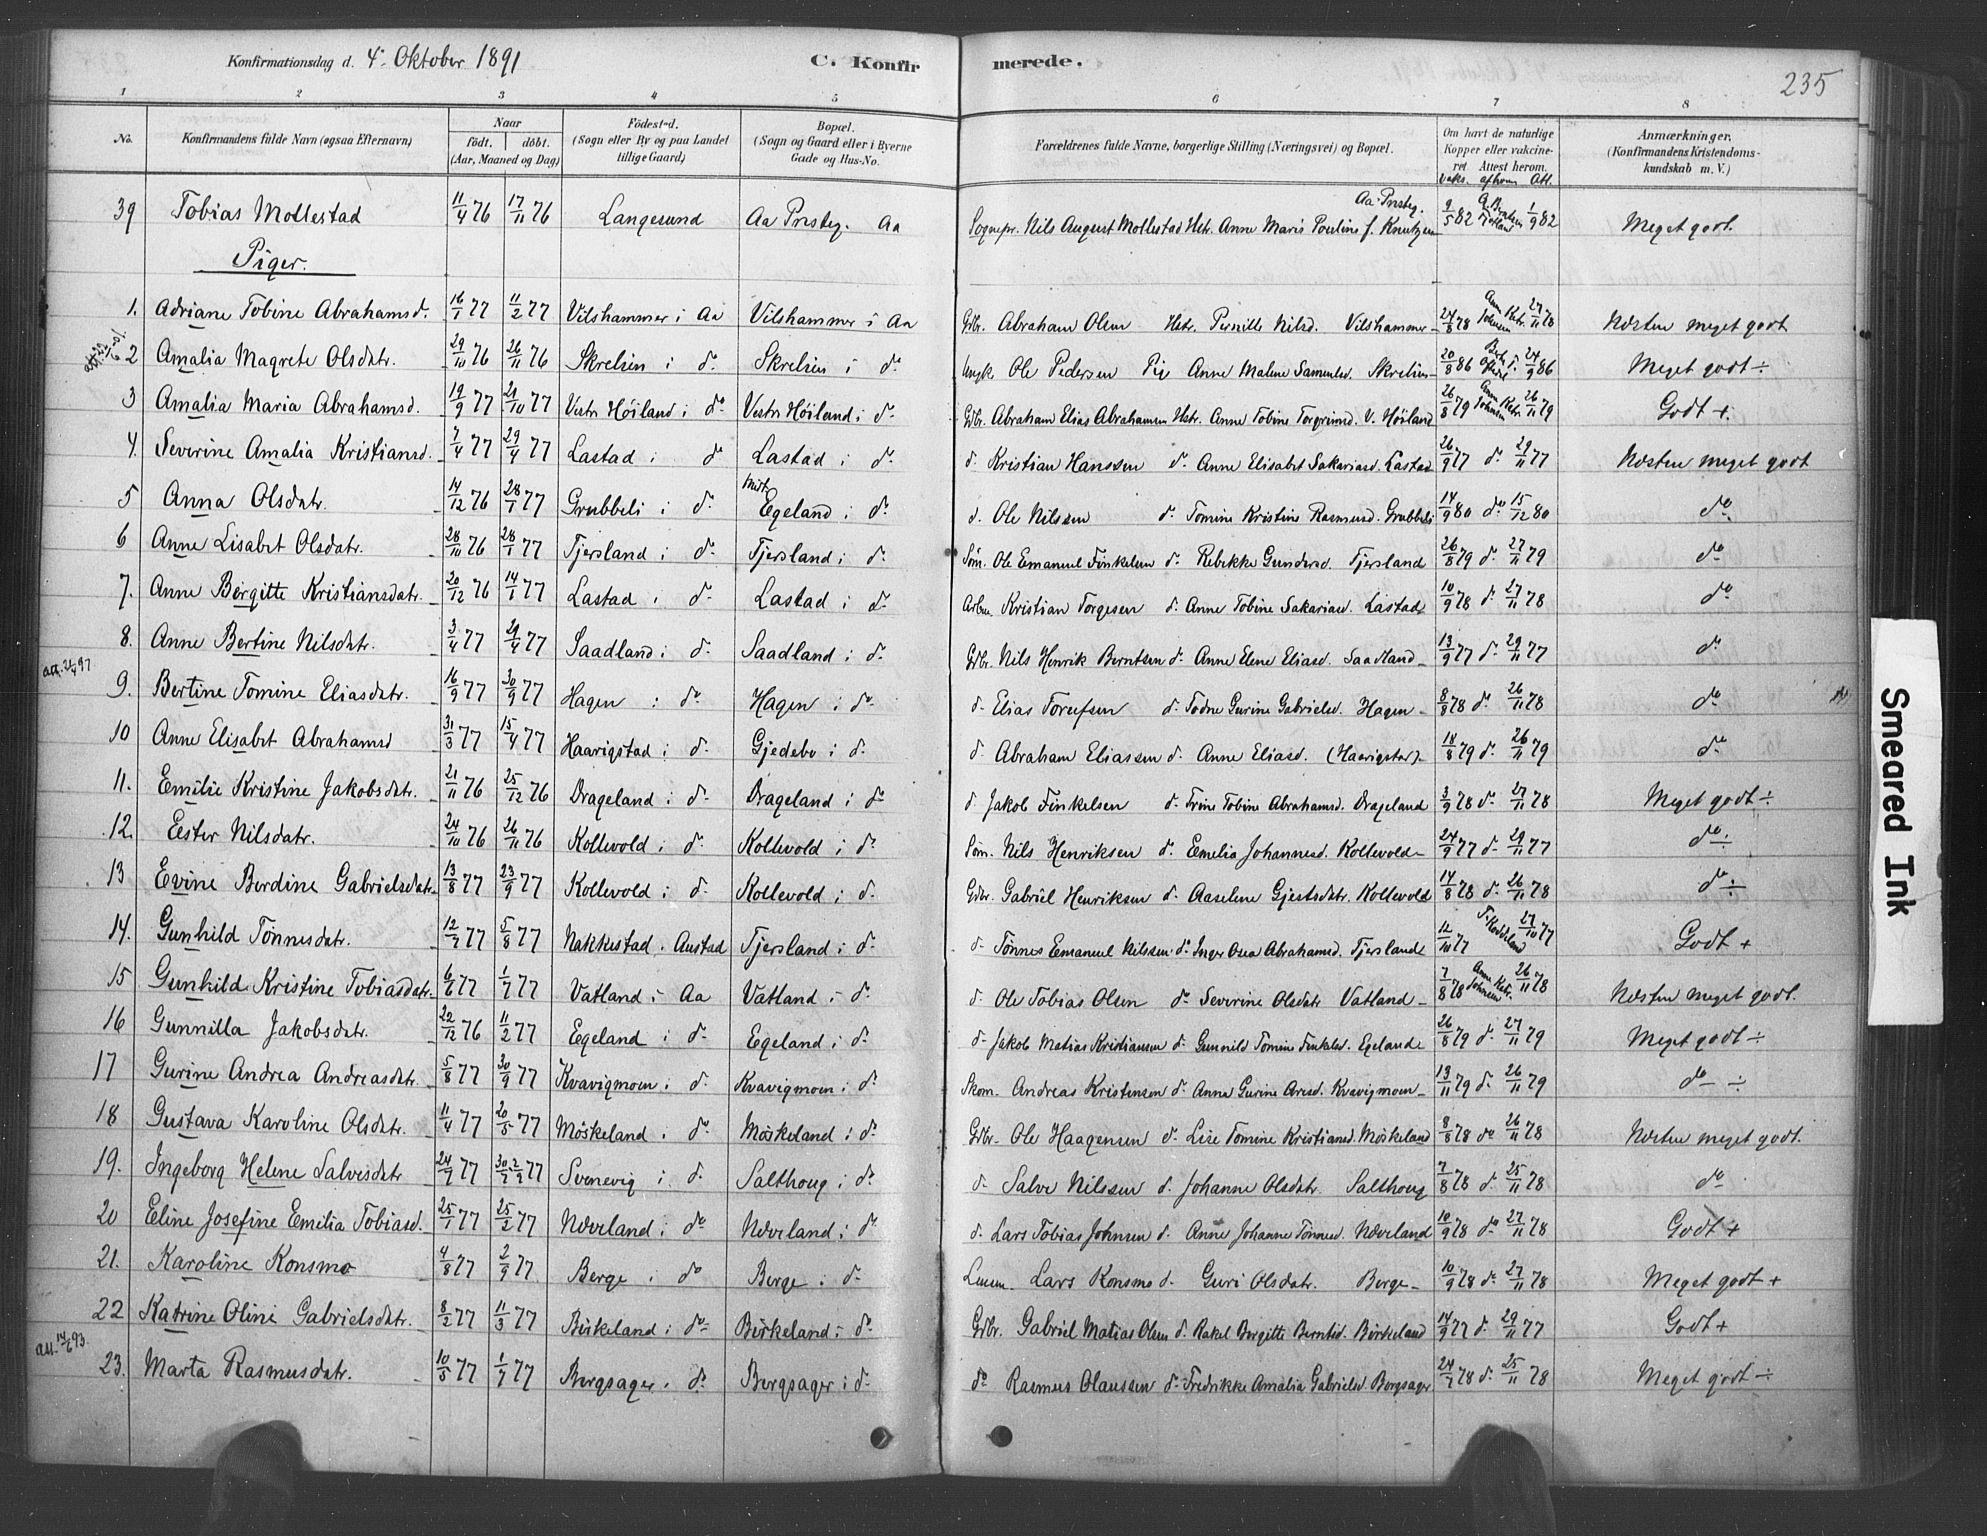 Konfirmationsdag d. 4. Oktober 1891 C. Konfirmerede. 235
1 2 3 4 5 6 7 8
No. Konfirmandens fulde Navn (ogsaa Efternavn) Naar født. døbt. (Aar, Maaned og Dag) Fødested. (Sogn eller By og paa Landet tillige Gaard) Bopæl. (Sogn og Gaard eller i Byerne Gade og Hus-No. Forældrenes fulde Navne, borgerlige Stilling (Næringsvei) og Bopæl. Om havt de naturlige Kopper eller vakcineret Attest herom. vaks. af hvem Att. Anmærkninger, (Konfirmandens Kristendomskundskab m. V.)
39 Tobias Mollestad 11/4 76 17/11 76 Langesund Aa Prsteg. Aa Sognepr. Nils August Mollestad Hstr. Anne Maris Pouline f. Knutzen Aa Prsteg. 9/5 82 1/9 82 Meget godt.
Piger.
1. Adriane Tobine Abrahamsd. 16/1 77 11/2 77 Vilshammer i Aa Vilshammer i Aa Gdbr. Abraham Olsen Hstr. Pernille Nilsd. Vilshammer 24/8 78 Ann Ktr. Johnsen 27/11 78 Næsten meget godt
2 Amalia Magrete Olsdatr. 29/10 76 26/11 76 Skrelien i do Skrelien i do Ungk Ole Pedersen Pig Anne Malene Samuelsd. Skrelien 20/8 86 24/9 86 Meget godt ÷
3 Amalia Maria Abrahamsd. 19/9 77 21/10 77 Vestr Høiland i do Vestr Høiland i do Gdbr. Abraham Elias Abrahamsen Hstr. Anne Tobine Torgrimsd. V. Høiland 26/8 79 Ann Ktr. Johnsen 26/11 79 Godt +
4. Severine Amalia Kristiansd. 7/4 77 29/4 77 Lastad i do Lastad i do d. Kristian Hanssen d. Anne Elisabet Sakariasd. Lastad 26/9 77 do 29/11 77 Næsten meget godt
5 Anna Olsdatr. 14/12 76 28/1 77 Grubbeli i do Midtr Egeland i do d. Ole Nilssen do Tomine Kristine Rasmusd. Grubbeli 14/9 80 do 15/12 80 do
6 Anne Lisabet Olsdatr. 28/10 76 28/1 77 Tjersland i do Tjersland i do Søm. Ole Emanuel Finkelsen d. Rebekke Gundersd. Tjersland 26/8 79 d. 27/11 79 do
7. Anne Børgitte Kristiansdatr. 20/12 76 14/1 77 Lastad i do Lastad i do Arbm. Kristian Torgesen d. Anne Tobine Sakariasd. Lastad 10/9 78 d. 27/11 78 do
8. Anne Bertine Nilsdatr. 3/4 77 29/4 77 Saadland i do Saadland i do Gdbr. Nils Henrik Berntsen d. Anne Elene Eliasd. Saadland 13/9 77 d. 29/11 77 do
att. 21/4 97
9. Bertine Tomine Eliasdatr. 16/9 77 30/9 77 Hagen i do Hagen i do d. Elias Torufsen d. Todne Gurine Gabrielsd. Hagen 8/8 78 d. 26/11 78 do
10 Anne Elisabet Abrahamsd 31/3 77 15/4 77 Haarigstad i do Gjedebo i do d. Abraham Eliassen d. Anne Eliasd. (Haarigstad) 18/8 79 d. 26/11 79 do
11. Emilie Kristine Jakobsdatr. 21/11 76 25/12 76 Drageland i do Drageland i do d Jakob Finkelsen d. Trine Tobine Abrahamsd. Drageland 3/9 78 d. 27/11 78 Meget godt ÷
12. Ester Nilsdatr. 24/10 76 26/11 76 Kollevold i do Kollevold i do Søm. Nils Henriksen d. Emelia Johannesd. Kollevold 24/9 77 d. 29/11 77 do ÷
13 Evine Berdine Gabrielsdatr. 13/8 77 23/9 77 Kollevold i do Kollevold i do Gdbr. Gabriel Henriksen d. Aaselene Gjestsdatr. Kollevold 14/8 78 d. 26/11 78 do ÷
14. Gunhild Tønnesdatr. 12/7 77 5/8 77 Nakkestad i Austad Tjersland i do d. Tønnes Emanuel Nilssen do Inger Osea Abrahamsd. Tjersland 12/10 77 27/10 77 Godt +
15 Gunhild Kristine Tobiasdatr. 6/6 77 1/7 77 Vatland i Aa Vatland i do d. Ole Tobias Olsen do Severine Olsdatr Vatland 7/8 78 Anne Ktr. Johnsen 26/11 78 Næsten meget godt.
16 Gunnilla Jakobsdatr. 22/12 76 11/2 77 Egeland i do Egeland i do d. Jakob Matias Kristiansen d. Gunnild Tomine Finkelsd. Egeland 26/8 79 d. 27/11 79 Meget godt ÷
17 Gurine Andrea Andreasdatr. 5/8 77 30/9 77 Kvavigmoen i do Kvavigmoen i do Skom. Andreas Kristensen d. Anna Gurine Aresd. Kvavigmoen 13/11 79 d. 26/11 79 do ÷
18 Gustava Karoline Olsdatr. 11/4 77 20/5 77 Möskeland i do Möskeland i do Gdbr. Ole Haagensen d. Lise Tomine Kristiansd. Möskeland 8/8 78 do 26/11 78 Næsten meget godt.
19. Ingeborg Helene Salvesdatr 24/7 77 30/7 2/9 77 Svenevig i do Salthoug i do d. Salve Nilssen d. Johanne Olsdatr. Salthoug 7/8 78 d. 25/11 78 do
20 Eline Josefine Emilia Tobiasd. 25/1 77 25/2 77 Næveland i do Næveland i do d. Lars Tobias Johnsen d. Anne Johanne Tønnesd. Næveland 10/9 78 do 27/11 78 Godt +
21. Karoline Konsmo 4/8 77 2/9 77 Berge i do Berge i do Lensm. Lars Konsmo d. Guri Olsdatr. Berge 10/9 78 do 27/11 78 Meget godt +
22 Katrine Oline Gabrielsdatr. 8/2 77 11/3 77 Birkeland i do Birkeland i do Gdbr. Gabriel Matias Olsen d. Rakel Børgitte Berntsd. Birkeland 14/9 77 d. 29/11 77 Godt +
att. 14/6 93.
23. Marta Rasmusdatr. 10/5 77 1/7 77 Bergsager i do Bergsager i do do Rasmus Olaussen d. Fredrikke Amalia Gabrielsd Bergsager 24/7 78 d. 25/11 78 Meget godt ÷
Smeared Ink